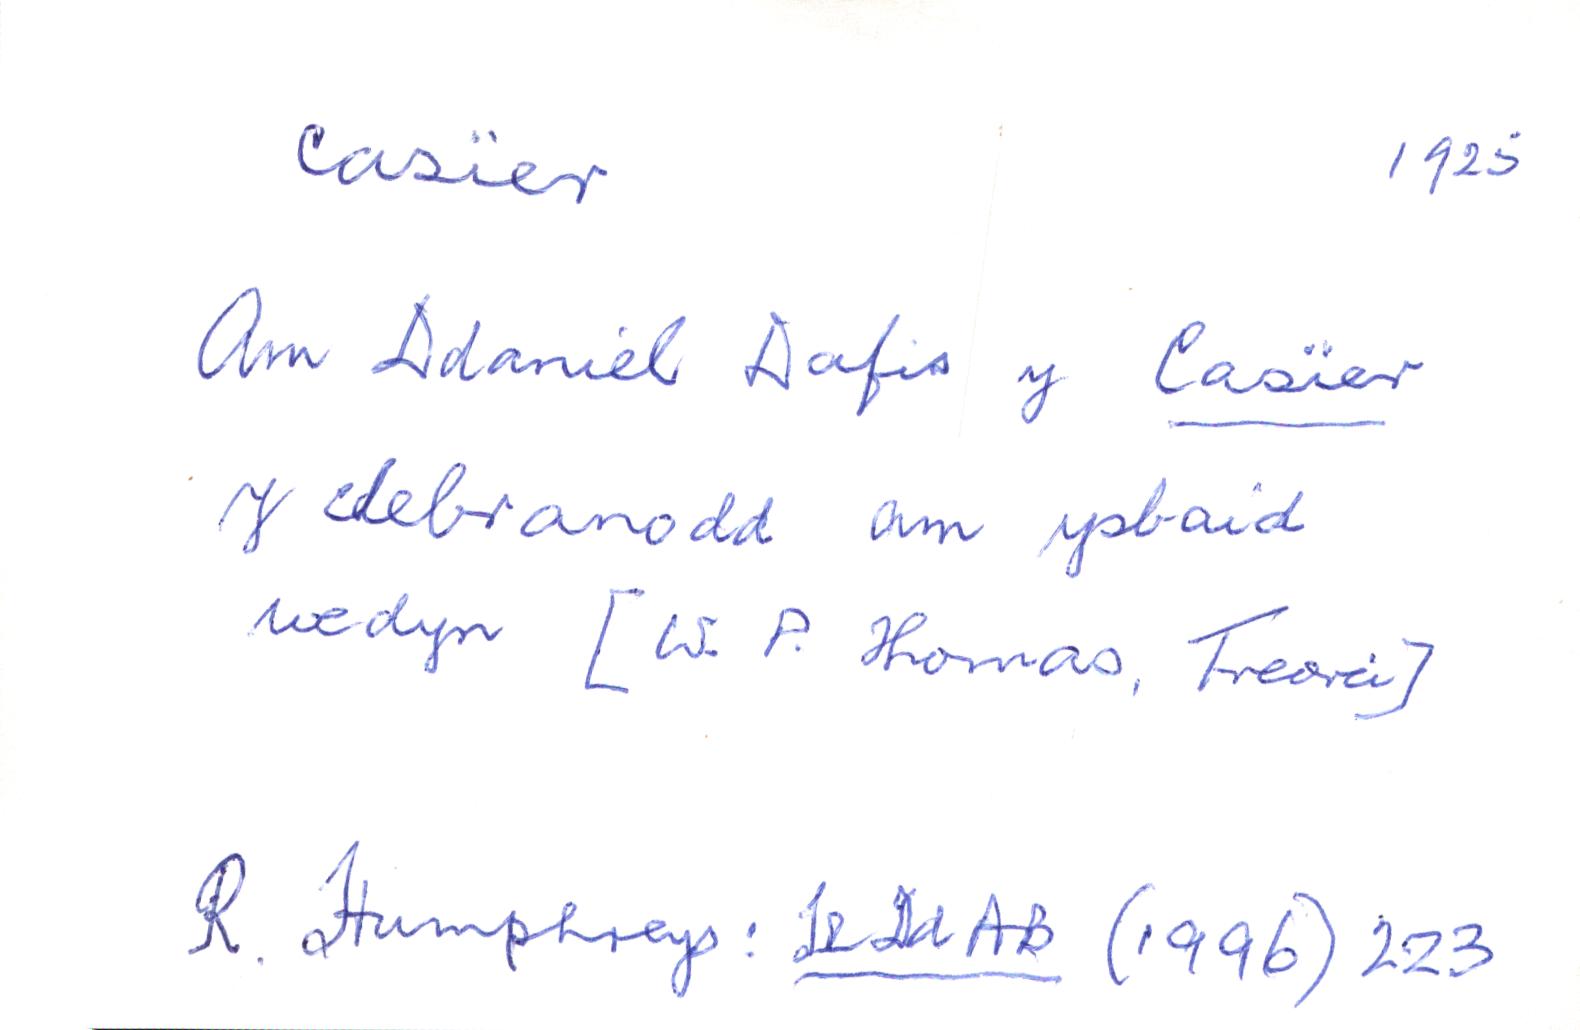 Casïer 1925
Am Ddaniel Dafis y Casïer
y clebranodd am ysbaid
wedyn [W. P. Thomas, Treorci]
R. Humphreys: (1996) 223